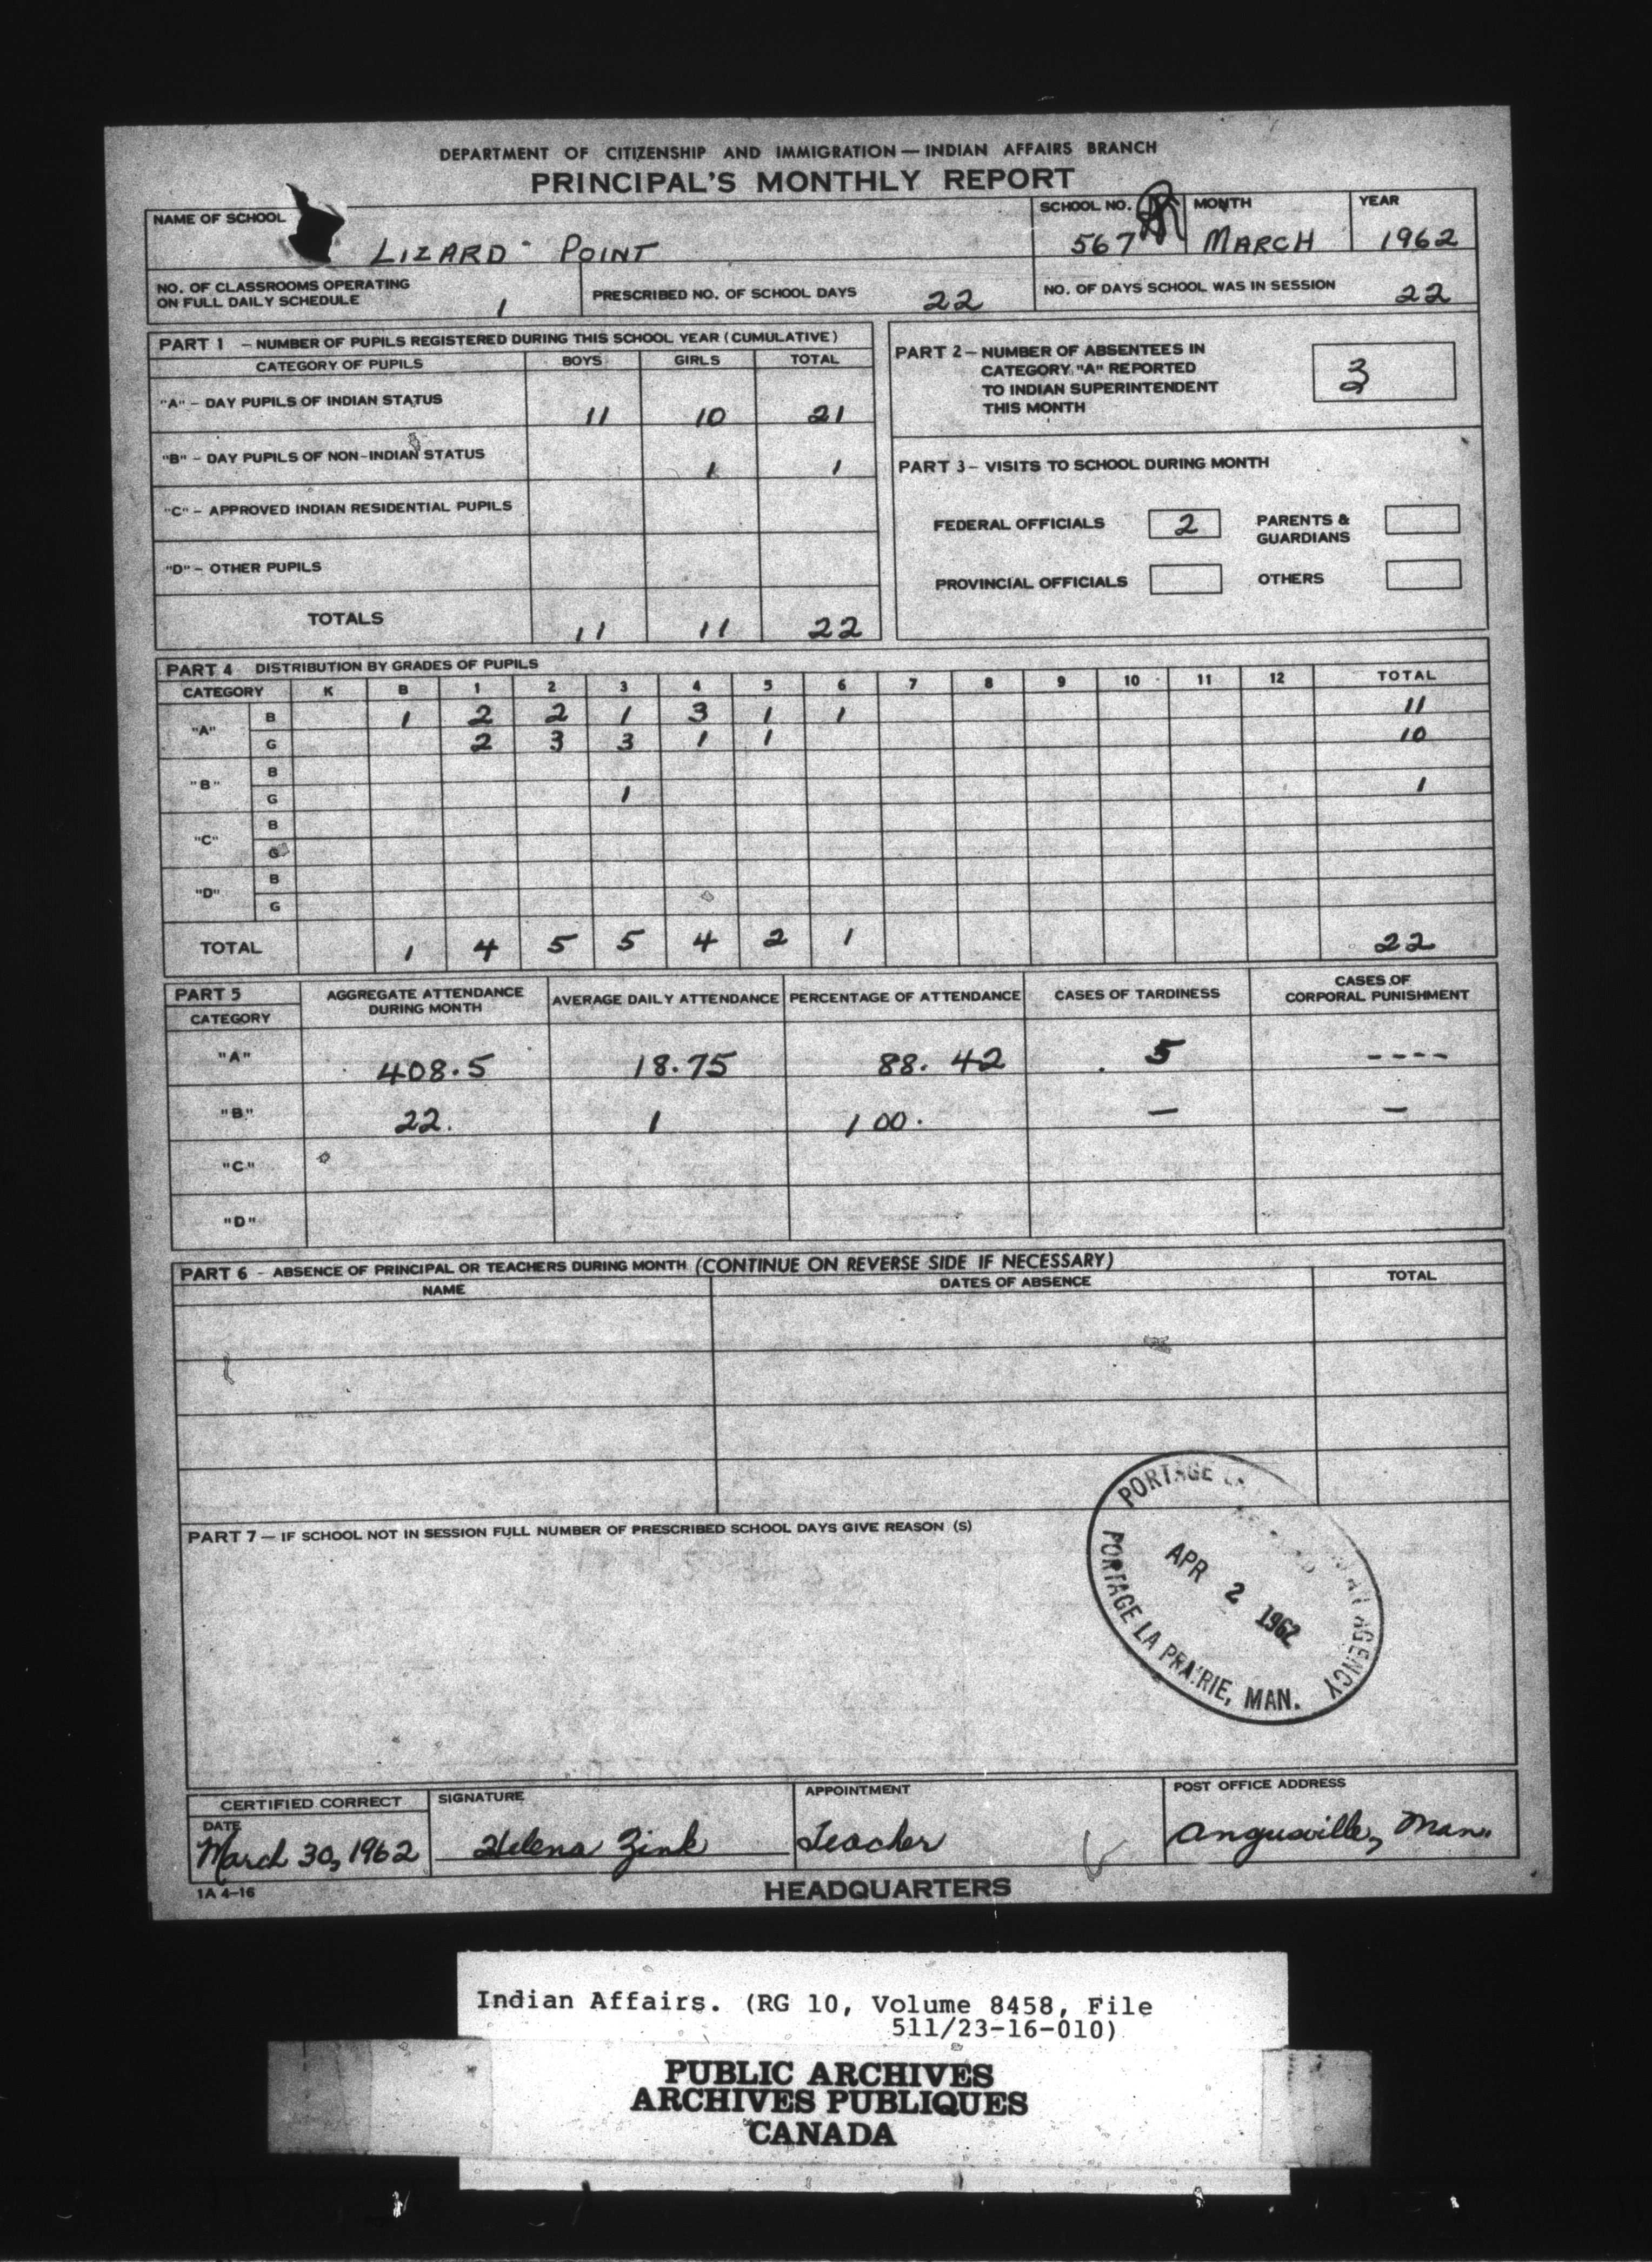 DEPARTMENT OF CITIZENSHIP AND IMMIGRATION — INDIAN AFFAIRS BRANCH
PRINCIPAL'S MONTHLY REPORT
NAME OF SCHOOL LIZARD POINT
SCHOOL NO. 567
MONTH MARCH
YEAR 1962
NO. OF CLASSROOMS OPERATING ON FULL DAILY SCHEDULE 1
PRESCRIBED NO. OF SCHOOL DAYS 22
NO. OF DAYS SCHOOL WAS IN SESSION 22
PART 1 — NUMBER OF PUPILS REGISTERED DURING THIS SCHOOL YEAR (CUMULATIVE)
CATEGORY OF PUPILS BOYS GIRLS TOTAL
"A" - DAY PUPILS OF INDIAN STATUS 11 10 21
"B" - DAY PUPILS OF NON-INDIAN STATUS 1 1
"C" - APPROVED INDIAN RESIDENTIAL PUPILS
"D" - OTHER PUPILS
TOTALS 11 11 22
PART 2 — NUMBER OF ABSENTEES IN
CATEGORY "A" REPORTED
TO INDIAN SUPERINTENDENT
THIS MONTH
3
PART 3 — VISITS TO SCHOOL DURING MONTH
FEDERAL OFFICIALS 2 PARENTS & GUARDIANS
PROVINCIAL OFFICIALS OTHERS
PART 4 DISTRIBUTION BY GRADES OF PUPILS
CATEGORY K B 1 2 3 4 5 6 7 8 9 10 11 12 TOTAL
"A" B 1 2 2 1 3 1 1 11
G 2 3 3 1 1 10
"B" B
G 1 1
"C" B
G
"D" B
G
TOTAL 1 4 5 5 4 2 1 22
PART 5
CATEGORY
AGGREGATE ATTENDANCE DURING MONTH
AVERAGE DAILY ATTENDANCE
PERCENTAGE OF ATTENDANCE
CASES OF TARDINESS
CASES OF CORPORAL PUNISHMENT
"A" 408.5 18.75 88.42 5 ----
"B" 22. 1 100. — —
"C"
"D"
PART 6 - ABSENCE OF PRINCIPAL OR TEACHERS DURING MONTH (CONTINUE ON REVERSE SIDE IF NECESSARY)
NAME DATES OF ABSENCE TOTAL
PART 7 — IF SCHOOL NOT IN SESSION FULL NUMBER OF PRESCRIBED SCHOOL DAYS GIVE REASON (S)
PORTAGE
AGENCY
APR 2 1962
PORTAGE LA PRAIRIE, MAN.
CERTIFIED CORRECT
DATE March 30, 1962
SIGNATURE Helena Zink
APPOINTMENT Teacher
POST OFFICE ADDRESS Angusville, Man.
1A 4-16
HEADQUARTERS
Indian Affairs. (RG 10, Volume 8458, File
511/23-16-010)
PUBLIC ARCHIVES
ARCHIVES PUBLIQUES
CANADA